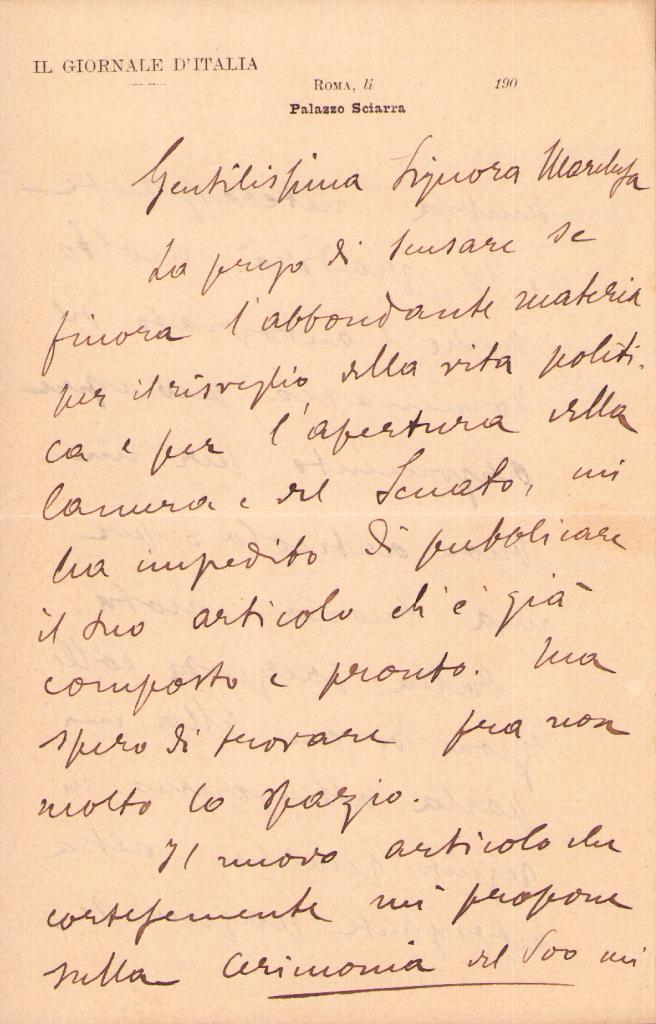 IL GIORNALE D'ITALIA
ROMA, li 190
Palazzo Sciarra
Gentilissima Signora
La prego di scusare se
finora l'abbondante materia
per il risveglio della vita politi-
ca e per l'apertura della
Camera e del Senato, mi
ha impedito di pubblicare
il suo articolo ch'è già
composto e pronto. Ma
spero di trovare fra non
molto lo spazio.
Il nuovo articolo che
cortesemente mi propone
sulla Cerimonia del 800 mi